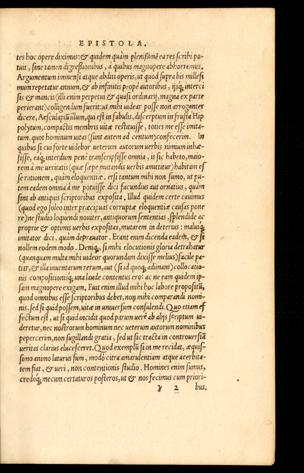 EPISTOLA.
tes hoc opere diximus: & quidem quàm plenissimè ea res scribi pa
tuit, sine tamen digressionibus, à quibus magnopere abhorremus.
Argumentum immensi atque abditi operis, ut quod supra bis millesi
mum repetatur annum, & ab infinitis propè autoribus, ijsq; interci
sis & mancis (illi enim perpetui & quasi ordinarij, magna ex parte
perierant) colligendum fuerit: ut mihi uidear posse non arroganter
dicere, Aesculapiū illum, qui est in fabulis, discerptum in frusta Hip
polytum, compactis membris uitæ restituisse, toties me esse imita
tum, quot hominum uitas (sunt autem ad centum) confecerim. In
quibus si cui forte uidebor ueterum autorum uerbis nimium inhæ-
sisse, eaq; interdum penè transcripsisse omnia, is sic habeto, maio-
rem à me ueritatis (quæ sæpe mutandis uerbis amittitur) habitam es
se rationem, quàm eloquentiæ, etsi tantum mihi non sumo, ut pu-
tem eadem omnia à me potuisse dici facundius aut ornatius, quàm
sint ab antiquis scriptoribus exposita, illud quidem certe cauimus
(quod ego soleo inter præcipuas corruptæ eloquentiæ causas pone
re) ne studio loquendi nouiter, antiquorum sententias, splendide ac
propriè & optimis uerbis expositas, mutarem in deterius: maluiq;
imitator dici, quàm deprauator. Erant enim dicenda eadem, & si
nollem eodem modo. Deniq; si mihi elocutionis gloria detrahatur
(quanquam multa mihi uideor quorundam dixisse melius) facile pa
tiar, & illa inuentarum rerum, aut (si id quoq; adimant) collocatio-
nis compositionisq; una laude contentus ero: ac ne eam quidem ip-
sam magnopere exigam. Fuit enim illud mihi hoc labore propositū,
quod omnibus esse scriptoribus debet, non mihi comparandi nomi-
nis, sed si quod possem, uitæ in uniuersum consulendi. Quo etiam ef
fectum est, ut si quid incidit quod parum uerè ab alijs scriptum ui-
deretur, nec nostrorum hominum nec ueterum autorum nominibus
pepercerim, non sugillandi gratia, sed ut sic tracta in controuersiā
ueritas clarius elucesceret. Quod exemplū si in me recidat, æquis-
simo animo laturus sum, modò citra amarulentiam atque acerbita-
tem fiat, & ueri, non contentionis studio. Homines enim sumus,
credoq; mecum certaturos posteros, ut & nos fecimus cum priori-
γ 2 bus,